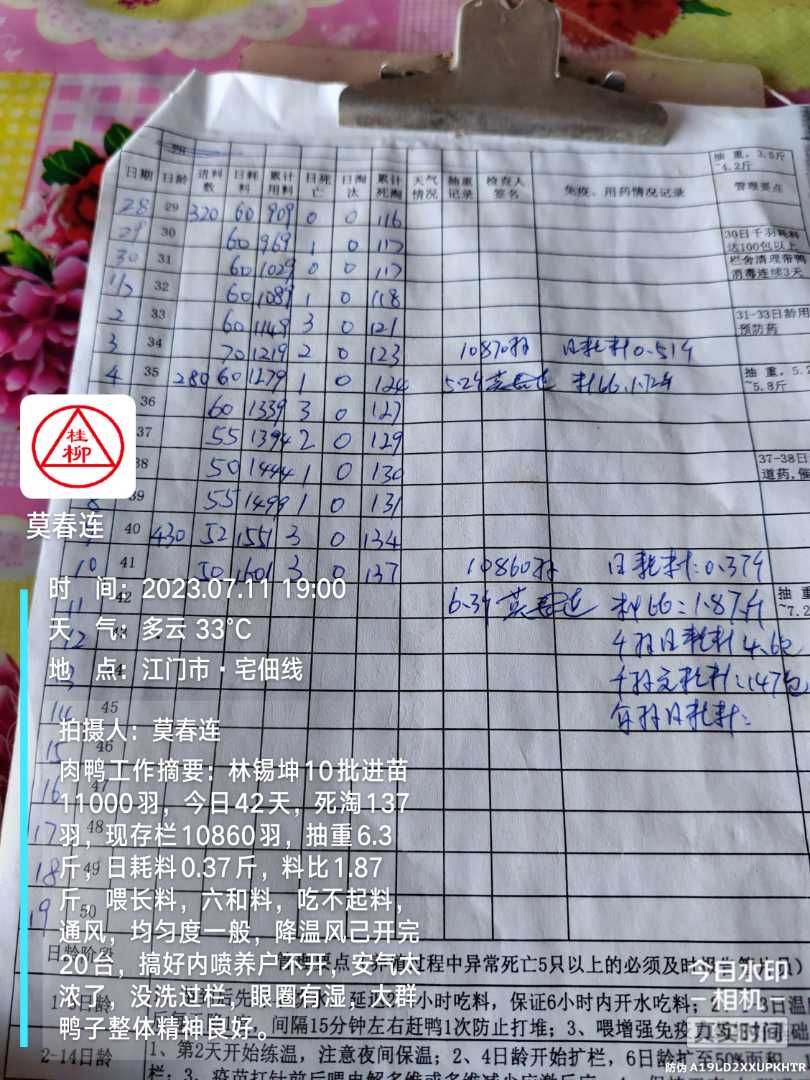 抽重,3.5斤
~4.2斤
日期 日龄 进料数 日耗料 累计用料 日死亡 日淘汰 累计死淘 天气情况 抽重记录 检查人签名 免疫、用药情况记录 管理要点
28 29 320 60 909 0 0 116
29 30 60 969 1 0 117 30日千羽耗料
达100包以上
30 31 60 1029 0 0 117 栏舍清理带鸭
消毒连续3天
1/7 32 60 1089 1 0 118
2 33 60 1149 3 0 121 31-33日龄用
预防药
3 34 70 1219 2 0 123 10870羽 日耗料0.51斤
4 35 280 60 1279 1 0 124 5.2斤 莫春连 料比1.72斤 抽重,5.2
~5.8斤
36 60 1339 3 0 127
37 55 1394 2 0 129
38 50 1444 1 0 130 37-38日
道药,催
8 39 55 1499 1 0 131
40 430 52 1551 3 0 134
10 41 50 1601 3 0 137 10860羽 日耗料:0.37斤
11 42 6.3斤 莫春连 料比:1.87斤 抽重
~7.2
12 43 千羽日耗料4.6包
13 44 千羽总耗料:147包
14 45 每羽日耗料:
15 46
16 47
17 48
18 49
19 50
桂柳
莫春连
时 间:2023.07.11 19:00
天 气:多云 33℃
地 点:江门市·宅佃线
拍摄人:莫春连
肉鸭工作摘要:林锡坤10批进苗
11000羽,今日42天,死淘137
羽,现存栏10860羽,抽重6.3
斤,日耗料0.37斤,料比1.87
斤。喂长料,六和料,吃不起料,
通风,均匀度一般,降温风已开完
20台,搞好内喷养户不开,安气太
浓了,没洗过栏,眼圈有湿,大群
鸭子整体精神良好。
日龄阶段 过程中异常死亡5只以上的必须及时
日龄 小时吃料,保证6小时内开水吃料;
间隔15分钟左右赶鸭1次防止打堆;3、喂增强免疫
2-14日龄 1、第2天开始练温,注意夜间保温;2、4日龄开始扩栏,6日龄扩至50%面积
今日水印
相机
真实时间
防伪 A19LD2XXUPKHTR